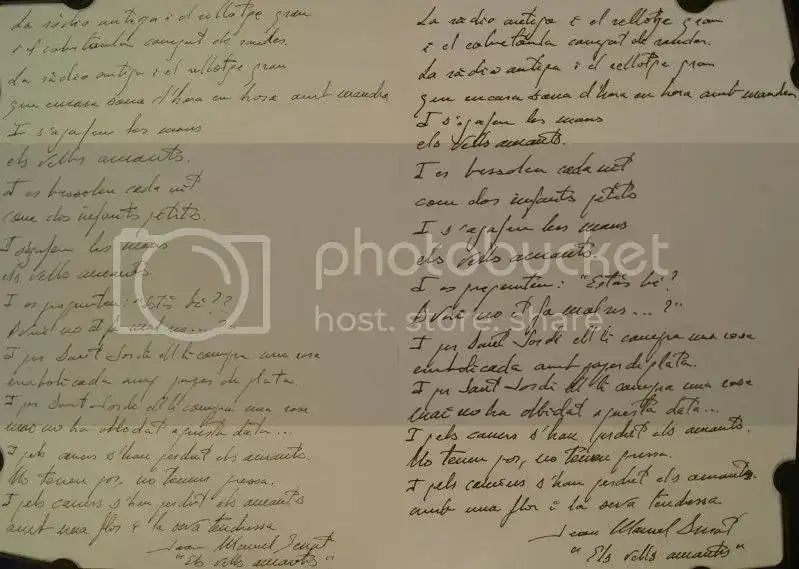 La ràdio antiga i el rellotge gran
i el cobretaula carregat de randes.
La ràdio antiga i el rellotge gran
que encara sona d'hora en hora amb mandra
I s'agafen les mans
els vells amants.
I es besseden cada nit
com dos infants petits.
I s'agafen les mans
els vells amants
I es pregunten: "Estàs bé??
Avui no et fa mal res...?"
I per Sant Jordi ell li compra una rosa
embolicada amb paper de plata.
I per Sant Jordi ell li compra una rosa
mai no ha oblidat aquesta data...
I pels camins s'han perdut els amants.
No tenen por, no tenen pressa.
I pels camins s'han perdut els amants
amb una flor i la seva tendressa
Joan Manuel Serrat
"Els vells amants"
La ràdio antiga i el rellotge gran
i el cobretaula carregat de randes.
La ràdio antiga i el rellotge gran
que encara sona d'hora en hora amb mandra
I s'agafen les mans
els vells amants.
I es besseden cada nit
com dos infants petits
I s'agafen les mans
els vells amants.
I es pregunten: "Estàs bé?
Avui no et fa mal res...?"
I per Sant Jordi ell li compra una rosa
embolicada amb paper de plata.
I per Sant Jordi ell li compra una rosa
mai no ha oblidat aquesta data...
I pels camins s'han perdut els amants.
No tenen por, no tenen pressa.
I pels camins s'han perdut els amants.
amb una flor i la seva tendressa
Joan Manuel Serrat
"Els vells amants"
photobucket
host. store. share